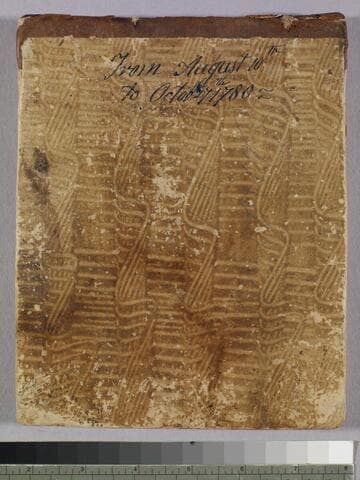 From August 10th
to Octobr 7th 1780